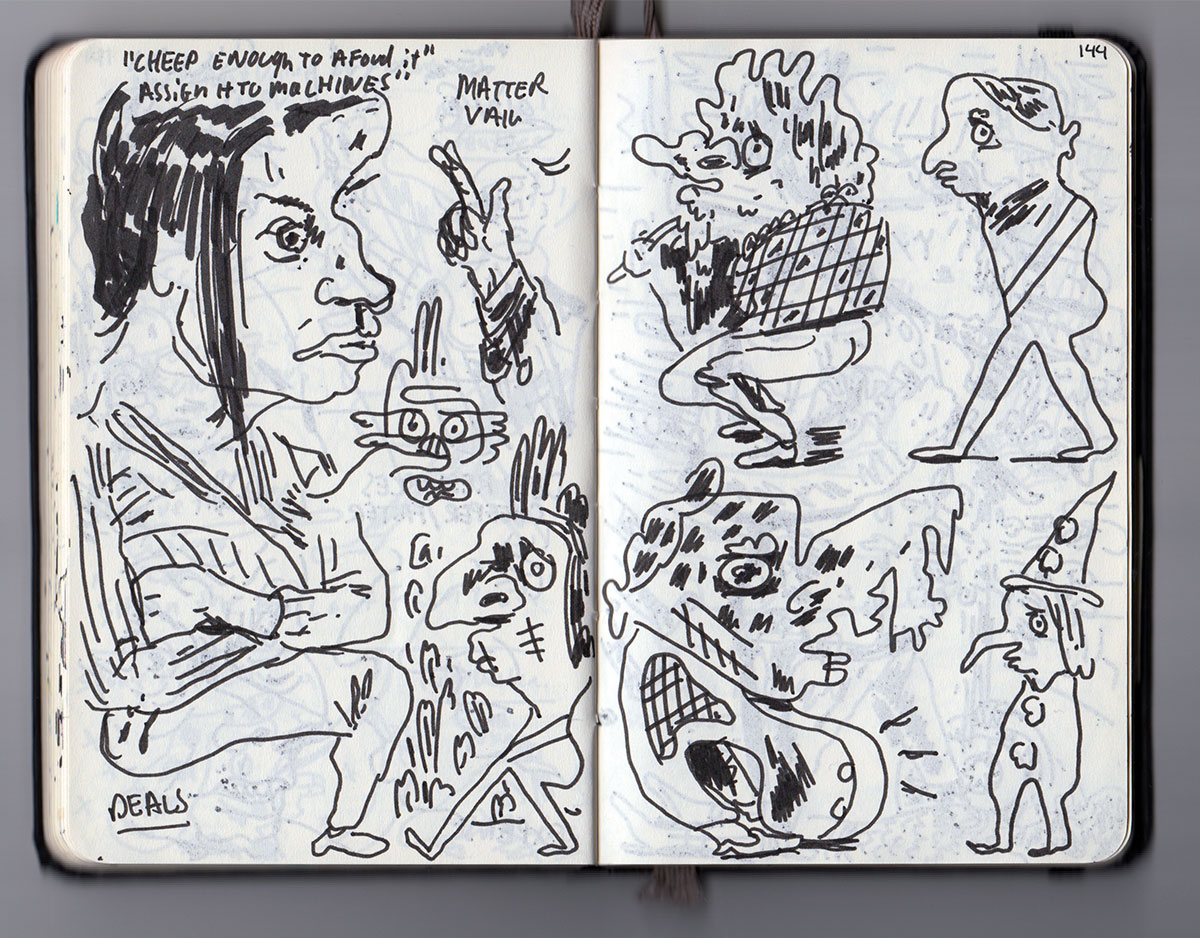 "CHEEP ENOUGH TO AFOUD it"
ASSIGN it TO MACHINES"
MATTER
VAIL
144
DEALS